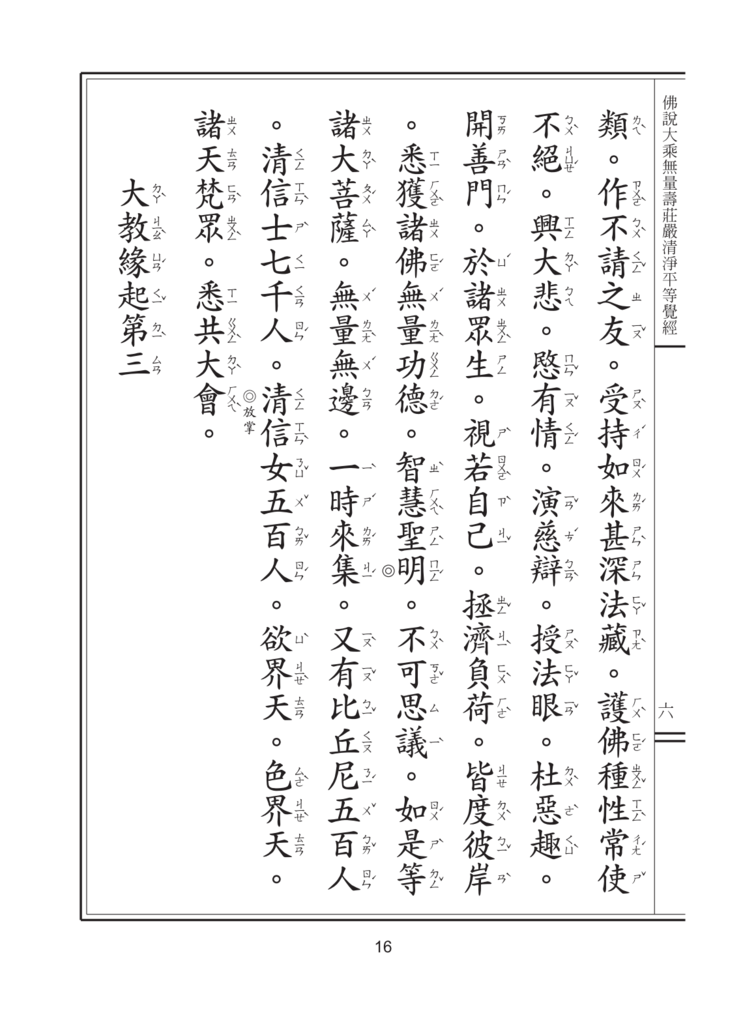 佛說大乘無量壽莊嚴清淨平等覺經
六
類。作不請之友。受持如來甚深法藏。護佛種性常使
不絕。興大悲。愍有情。演慈辯。授法眼。杜惡趣。
開善門。於諸眾生。視若自己。拯濟負荷。皆度彼岸
。悉獲諸佛無量功德。智慧聖◎明。不可思議。如是等
諸大菩薩。無量無邊。一時來集。又有比丘尼五百人
。清信士七千人。清信女五百人。欲界天。色界天。
諸天梵眾。悉共大會。◎放掌
大教緣起第三
16